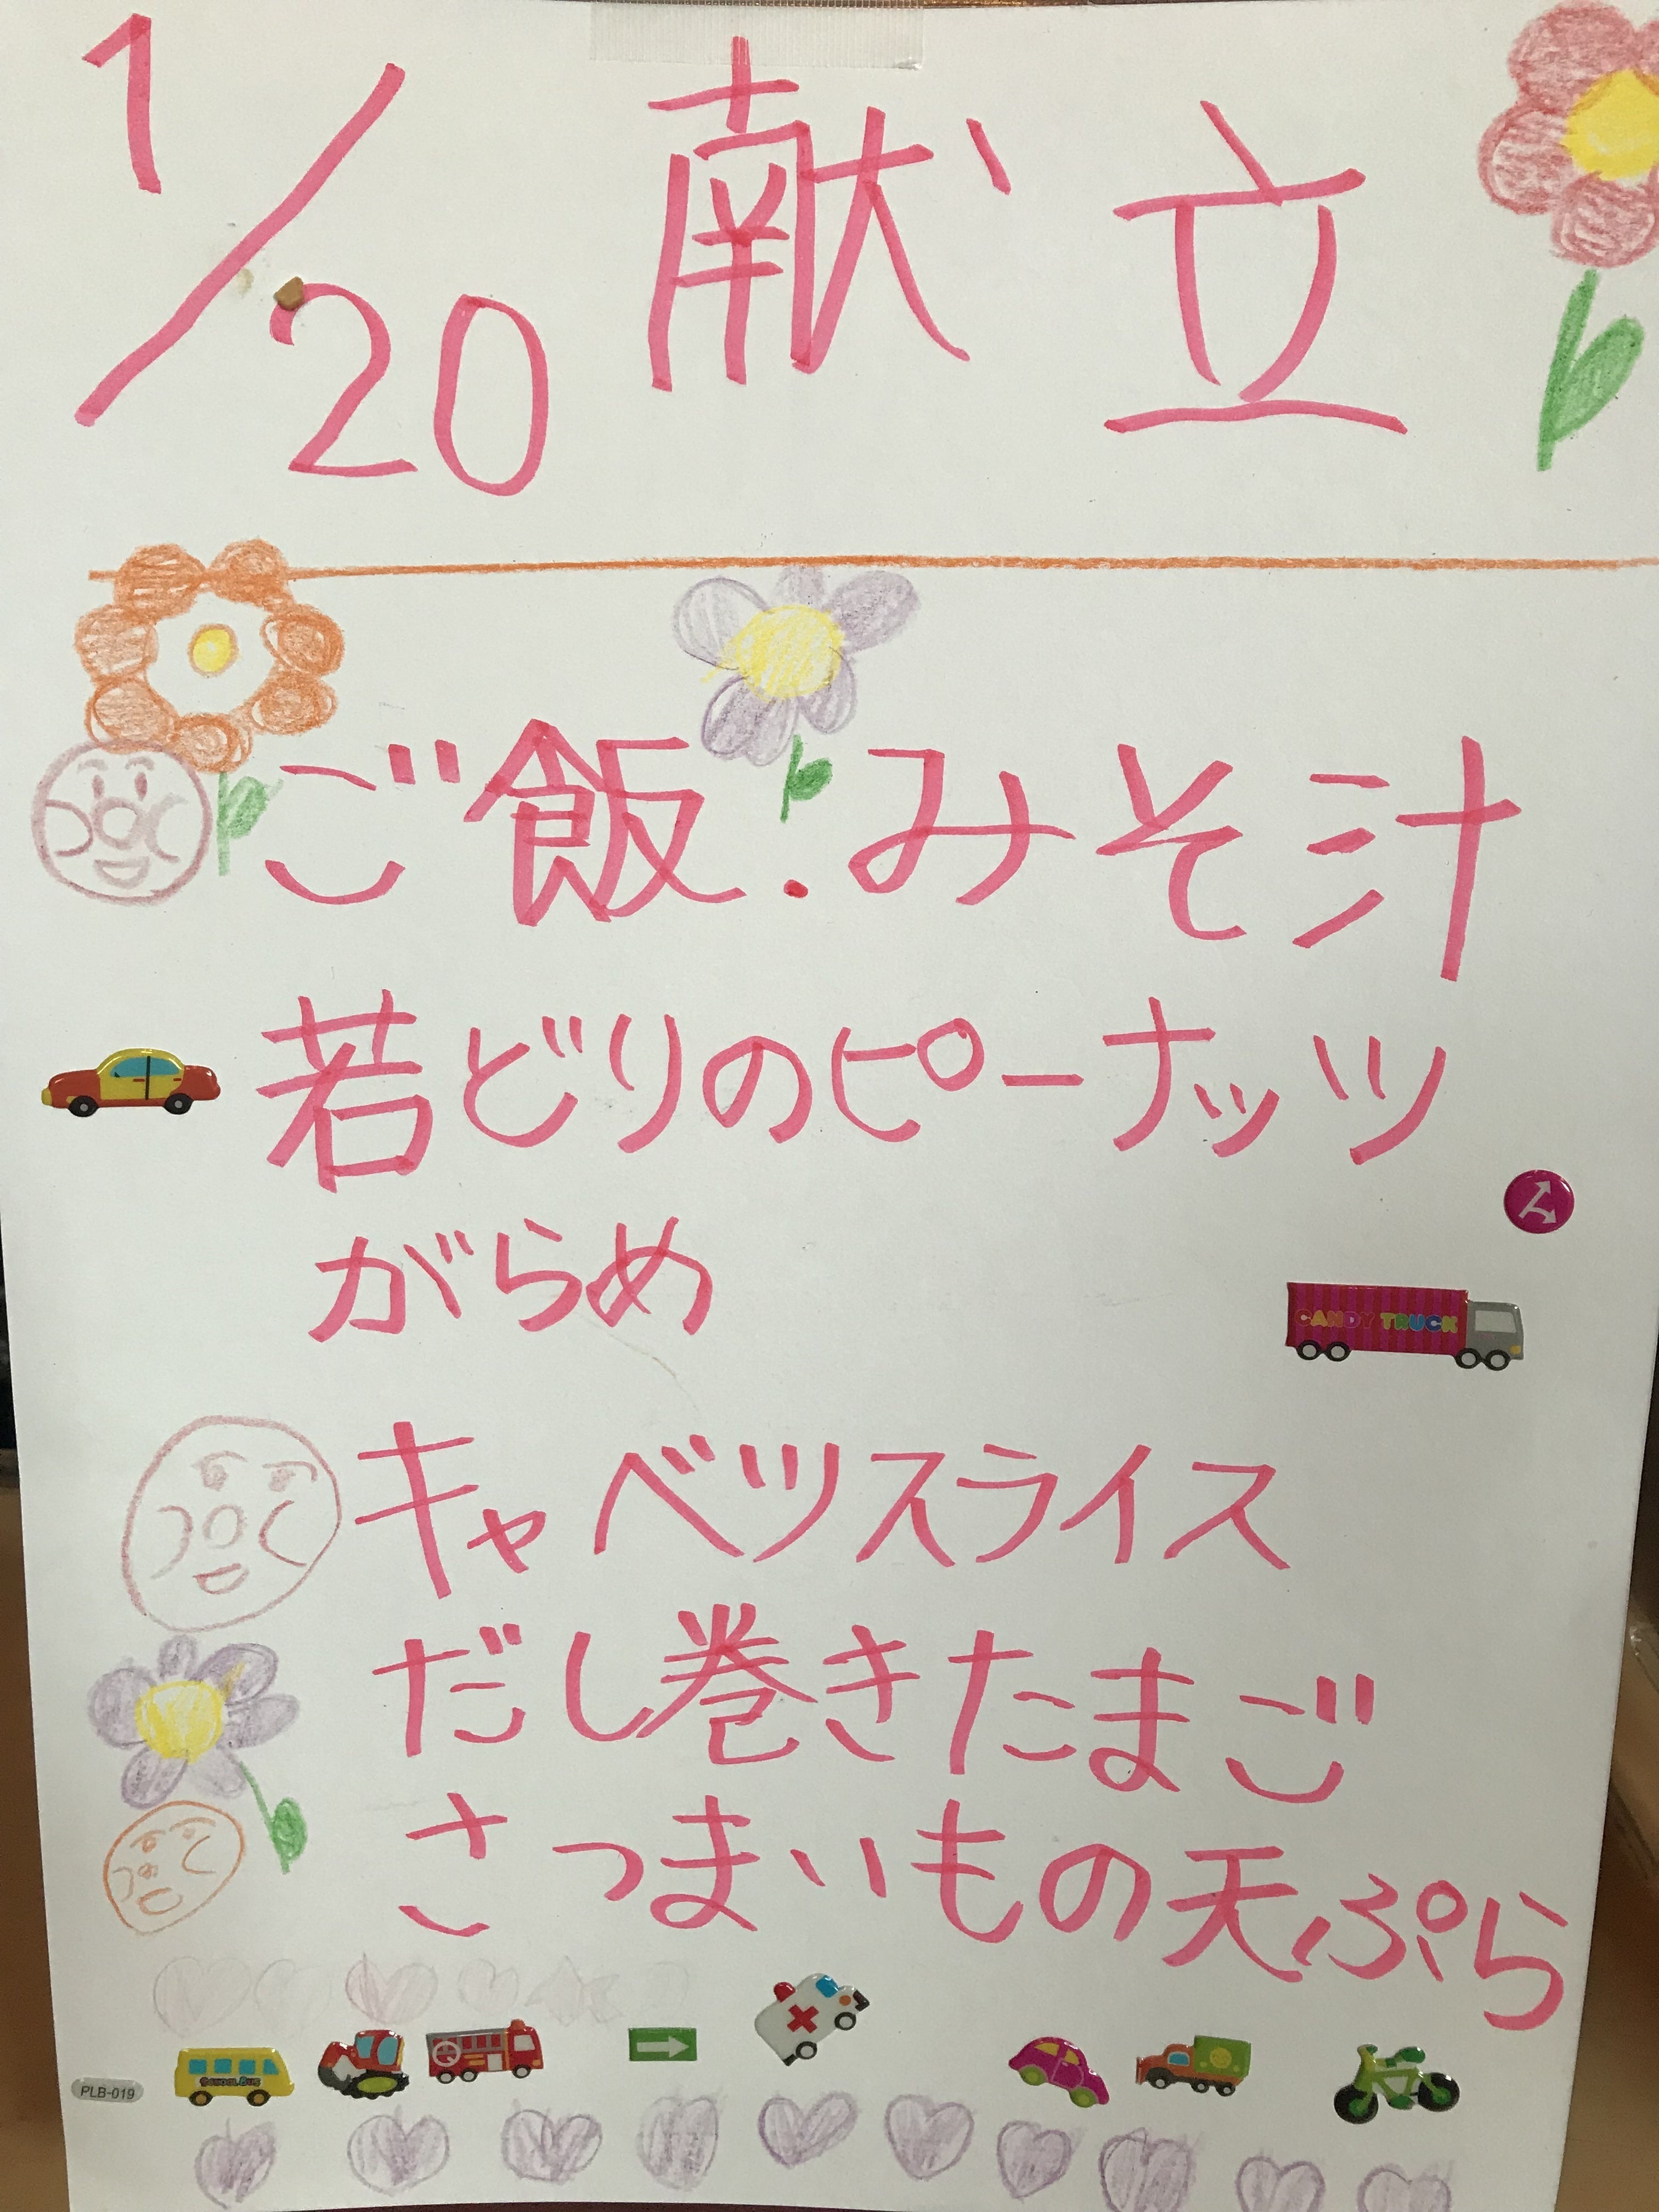 1/20 献立
ご飯.みそ汁
若どりのピーナッツ
がらめ
CANDY TRUCK
キャベツスライス
だし巻きたまご
さつまいもの天ぷら
SCHOOL BUS
PLB-019